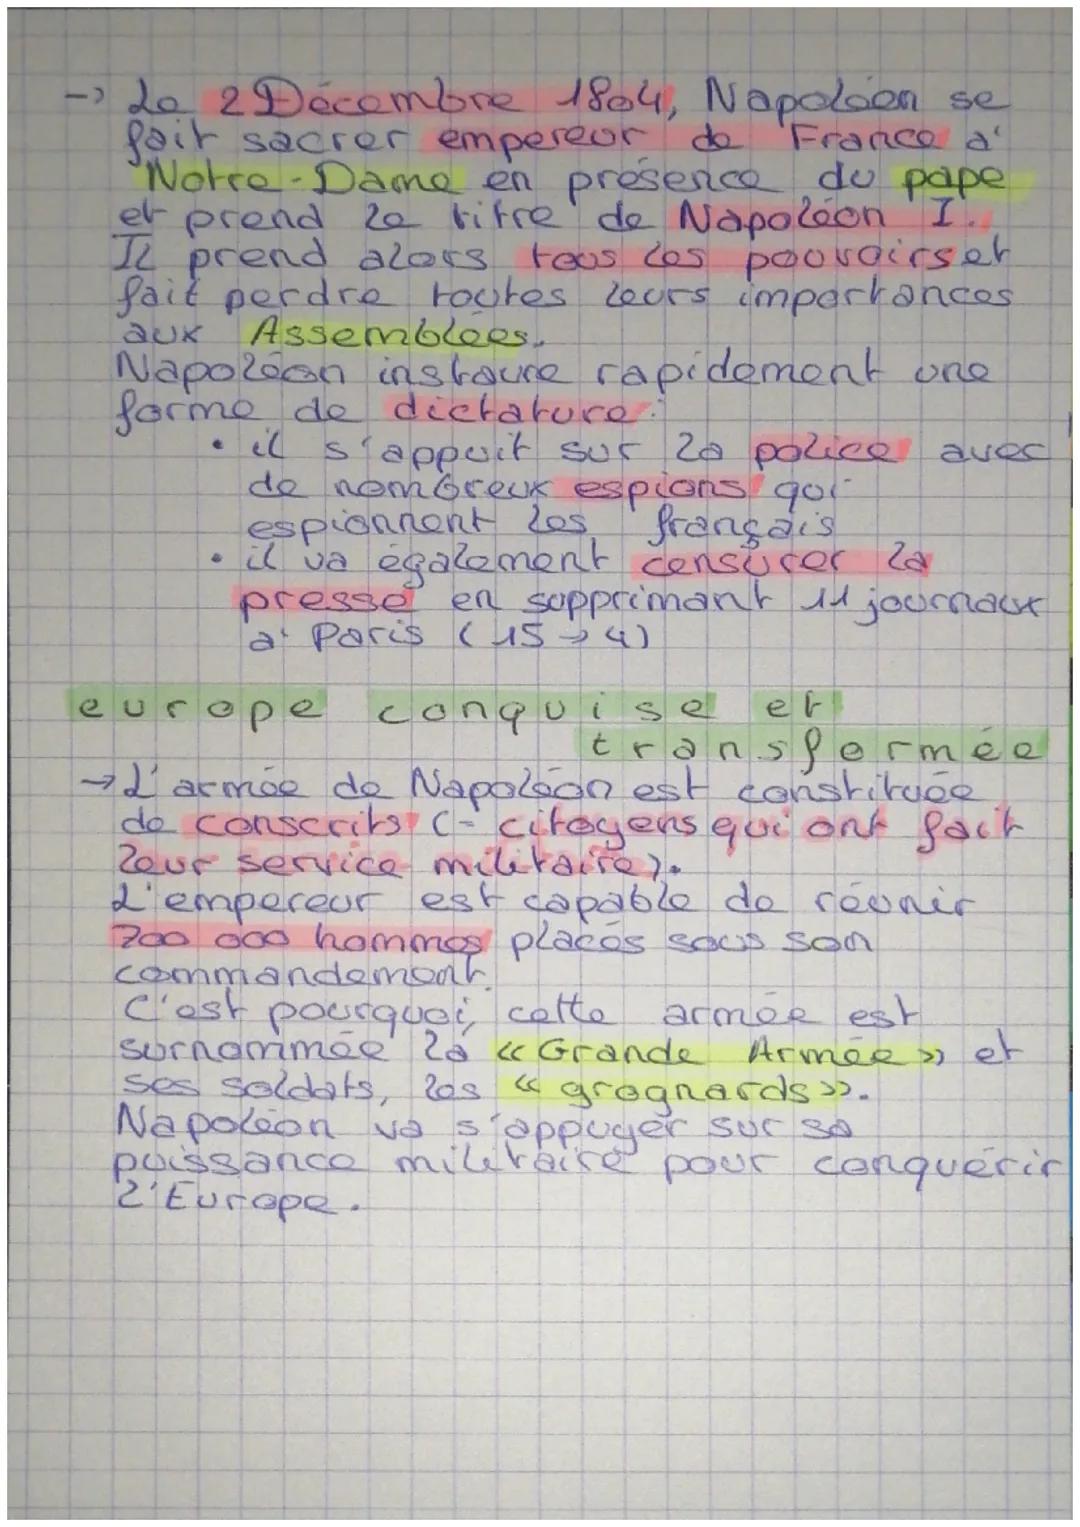 -> Le 2 Décembre 1804, Napoléon se
fait sacrer empereur de France à
Notre-Dame en présence du pape
et prend le titre de Napoléon I.
Il prend alors tous les pouvoirs et
fait perdre toutes leurs importances
aux Assemblées.
Napoléon instaure rapidement une
forme de dictature :
• il s'appuit sur la police avec
de nombreux espions qui
espionnent les français
• il va également censurer la
presse en supprimant 11 journaux
à Paris (15 → 4)
europe conquise et
transformée
→ L'armée de Napoléon est constituée
de conscrits (= citoyens qui ont fait
leur service militaire).
L'empereur est capable de réunir
700 000 hommes placés sous son
commandement.
C'est pourquoi, cette armée est
surnommée la « Grande Armée » et
ses soldats, les « grognards ».
Napoléon va s'appuyer sur sa
puissance militaire pour conquérir
l'Europe.